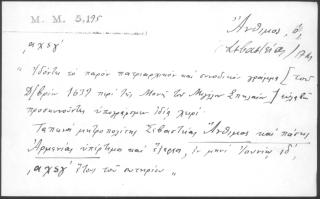 Μ. Μ. 5, 195
Ἄνθιμος, ὁ,
Σεβαστείας/
͵αχξγʹ
"Ἰδόντες τὸ παρὸν πατριαρχικὸν καὶ συνοδικὸν γράμμα [τοῦ
1639 περὶ τῆς Μονῆς τοῦ Μεγάλου Σπηλαίου] εὐλαβῶς
προσκυνοῦντες ὑπογράφομεν ἰδίᾳ χειρί·
Ταπεινὸς μητροπολίτης Σεβαστείας Ἄνθιμος καὶ πάσης
Ἀρμενίας ὑπέρτιμος καὶ ἔξαρχος, ἐν μηνὶ Ἰουνίῳ
͵αχξγʹ ἔτος τοῦ σωτηρίου"